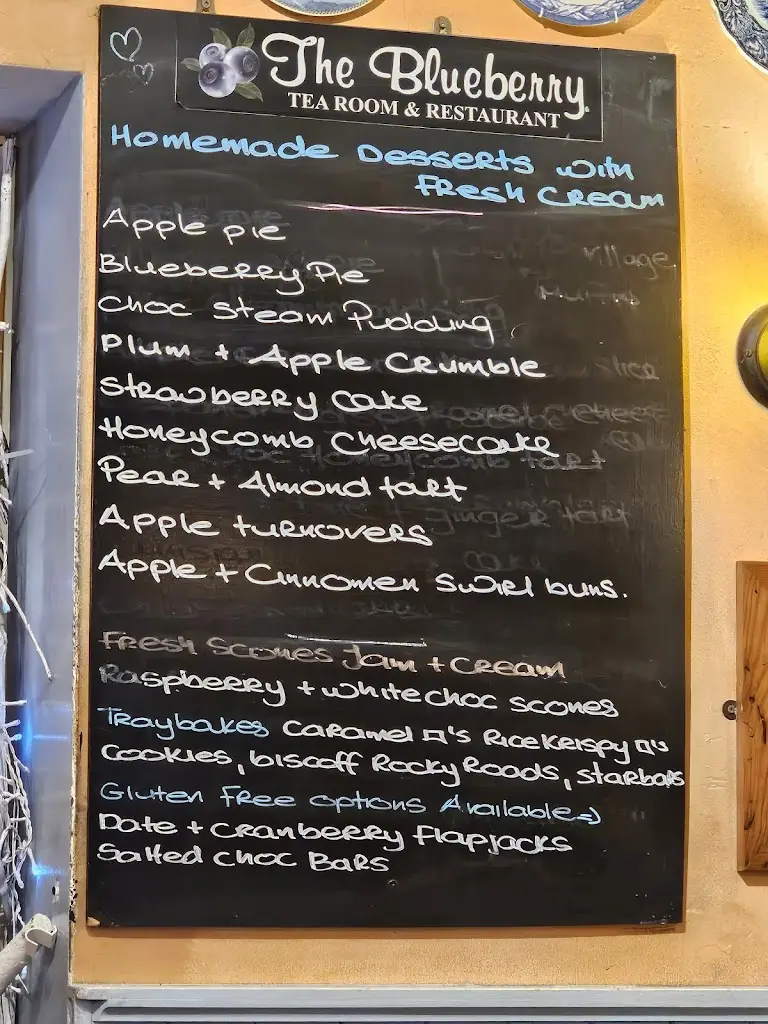 The Blueberry
TEA ROOM & RESTAURANT
Homemade Desserts with
Fresh Cream
Apple pie
Blueberry Pie
Choc Steam Pudding
Plum + Apple Crumble
Strawberry Cake
Honeycomb Cheesecake
Pear + Almond tart
Apple turnovers
Apple + Cinnomen Swirl buns.
Fresh Scones Jam + Cream
Raspberry + white choc scones
Traybakes Caramel □'s Rice Krispy □'s
Cookies, biscoff Rocky Roads, starbars
Gluten Free options Available =)
Date + Cranberry flapjacks
Salted choc Bars